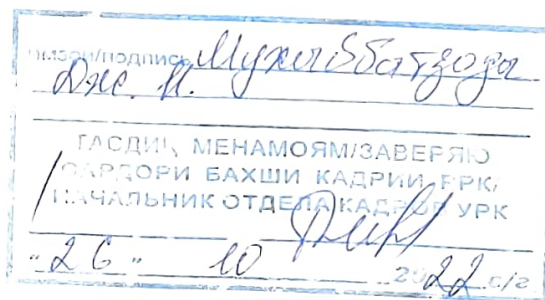 имзои/подпись Мухаббатзода
Дж. К.
ТАСДИҚ МЕНАМОЯМ/ЗАВЕРЯЮ
САРДОРИ БАХШИ КАДРИИ РРК/
НАЧАЛЬНИК ОТДЕЛА КАДРОВ УРК
„ 26 " 10 2022 с/г